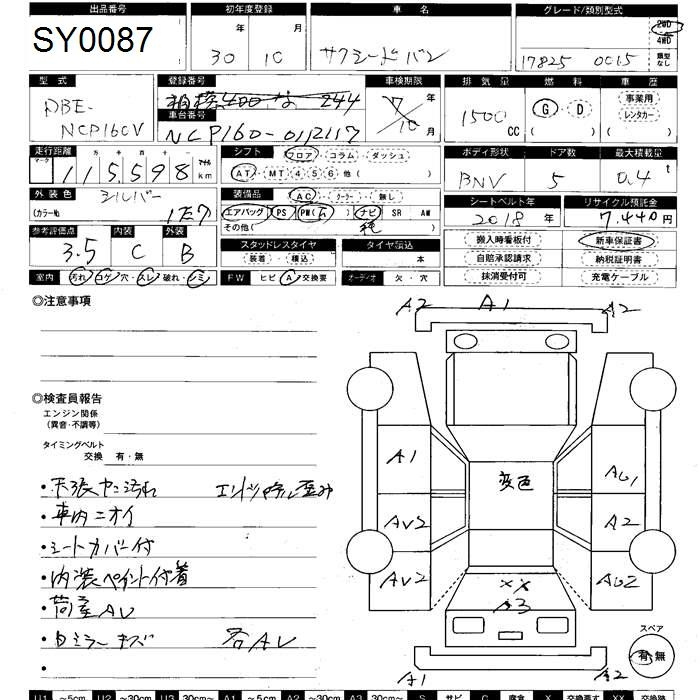 出品番号 初年度登録 車名 グレード/類別型式
SY0087 30年 10月 サクシードバン 17825 0015 2WD 4WD 類型なし
型式 登録番号 車検期限 排気量 燃料 車歴
DBE-NCP160V 相模400な 244 7年10月 1500CC G・D ( ) 事業用 レンタカー ( )
車台番号
NCP160-0112117
走行距離 シフト フロア・コラム・ダッシュ ボディ形状 ドア数 最大積載量
マーク 十万千百十一 115,598 km AT・MT 4 5 6 他( ) BNV 5 0.4 t
外装色 シルバー 装備品 AC・クーラー・無し シートベルト年 リサイクル預託金
(カラー№ 1E7 エアバッグ PS PW ナビ SR AW 2018年 7,440円
参考評価点 内装 外装 その他( 純 )
3.5 C B スタッドレスタイヤ タイヤ積込 搬入時看板付 新車保証書
装着・積込 本 自賠承認請求 納税証明書
室内 汚れ・コゲ・穴・スレ・破れ・シミ FW ヒビ・A・交換要 オーディオ 欠・穴 抹消受付可 充電ケーブル
◎注意事項
A2 A1 A2
◎検査員報告
エンジン関係
(異音・不調等)
タイミングベルト
交換 有・無
A1 変色 AU1
・天張ヤニ汚れ
・車内ニオイ
AU2 A2
・シートカバー付
・内装ペイント付着
AU2 XX A3 AU2
・荷室AU
・ミラーキズ 各AU
・
スペア
有・無
A1 A2
U1 ~5cm U2 ~30cm U3 30cm~ A1 ~5cm A2 ~30cm A3 30cm~ S サビ C 腐食 X 交換要す XX 交換跡